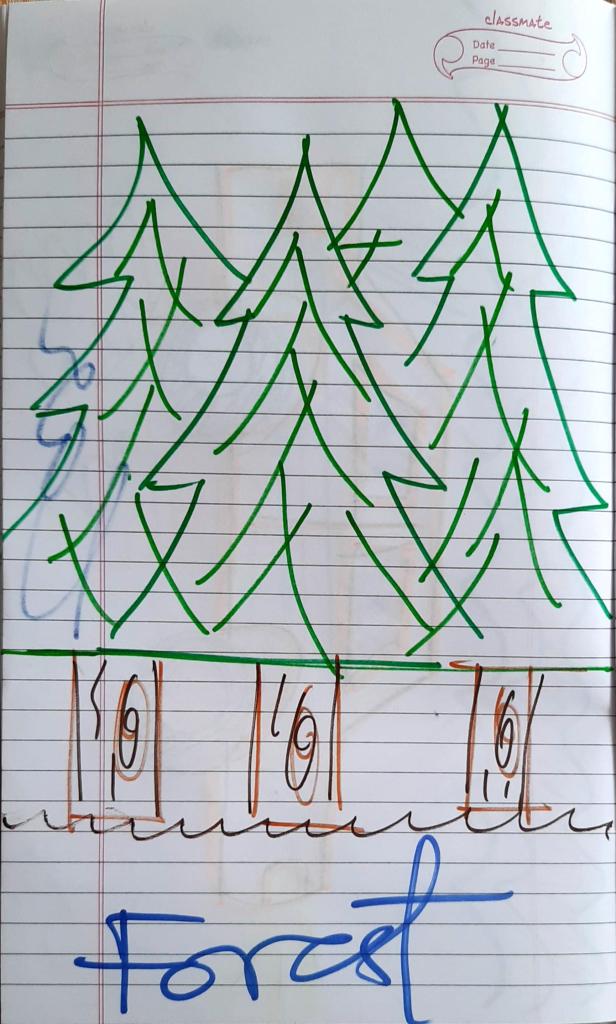 classmate
Date
Page
Forest